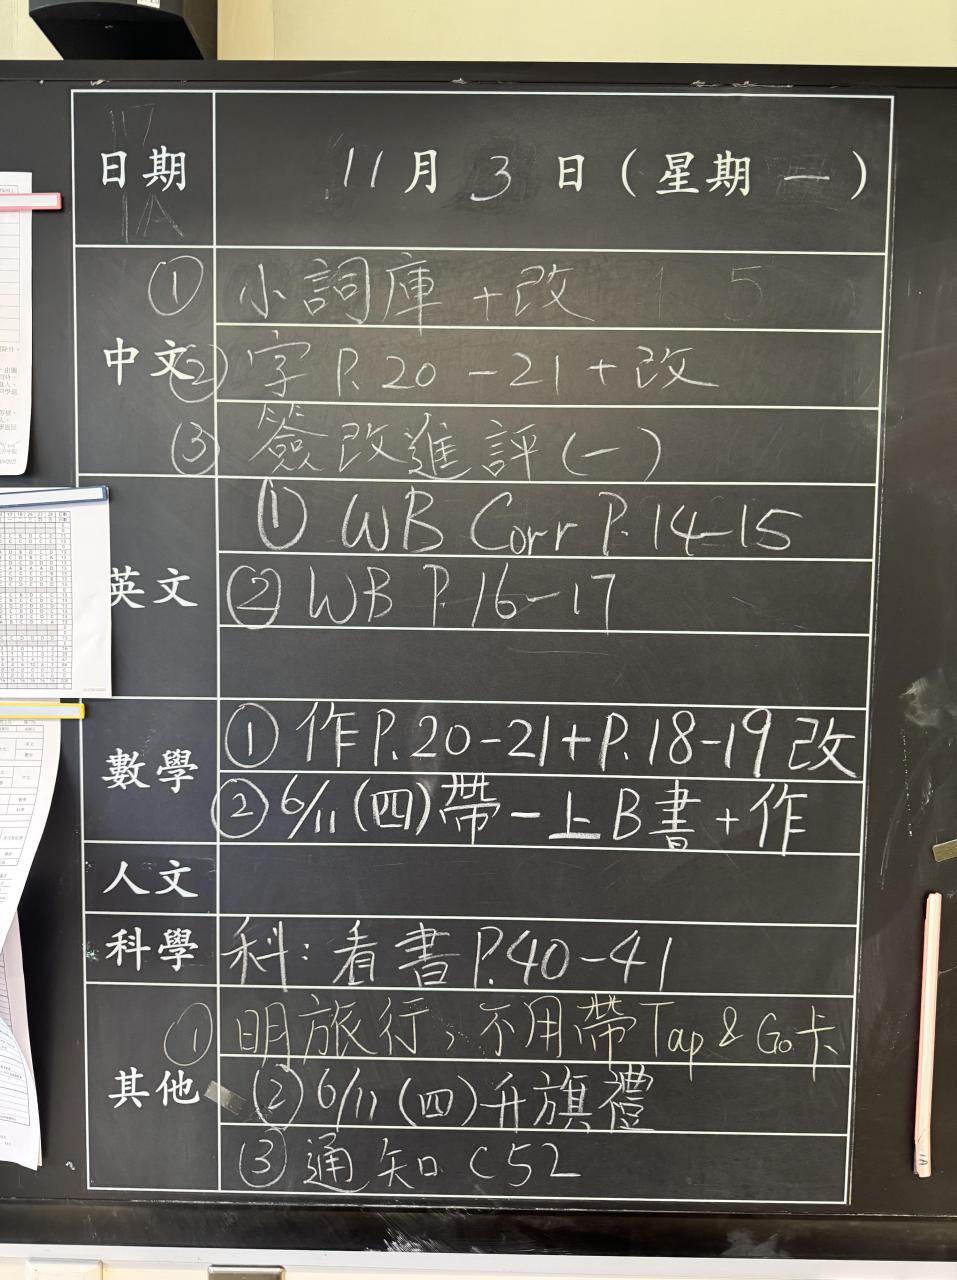 日期
11月3日(星期一)
1A
中文
① 小詞庫+改
② 字P.20-21+改
③ 簽改進評(一)
英文
① WB Corr P.14-15
② WB P.16-17
數學
① 作P.20-21+P.18-19改
② 6/11(四)帶一上B書+作
人文
科學
科:看書P.40-41
其他
① 明旅行、不用帶Tap & Go卡
② 6/11(四)升旗禮
③ 通知C52